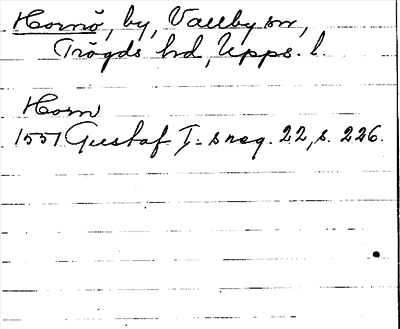 Hornö, by, Vallby sn,
Trögds hd, Upps. l.
Horn
1557 Gustaf I:s reg. 22, s. 226.